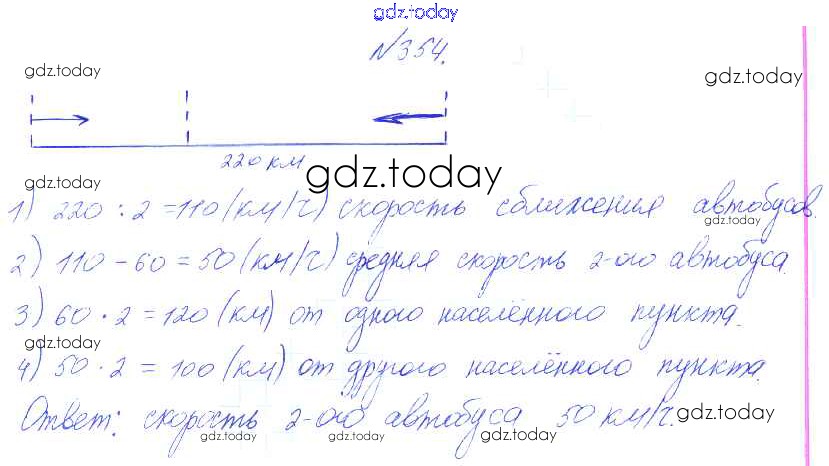 gdz.today
№354.
gdz.today
gdz.today
220 км
gdz.today
1) 220 : 2 = 110 (км/ч) скорость сближения автобусов.
gdz.today
2) 110 - 60 = 50 (км/ч) средняя скорость 2-ого автобуса.
3) 60 · 2 = 120 (км) от одного населённого пункта.
gdz.today
gdz.today
4) 50 · 2 = 100 (км) от другого населённого пункта.
Ответ: скорость 2-ого автобуса 50 км/ч.
gdz.today
gdz.today
gdz.today